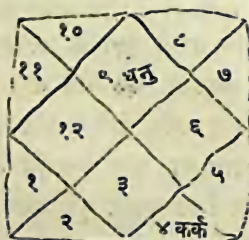 १० ८
११ ९ धनु ७
१२ ६
१ ३ ५
२ ४ कर्क